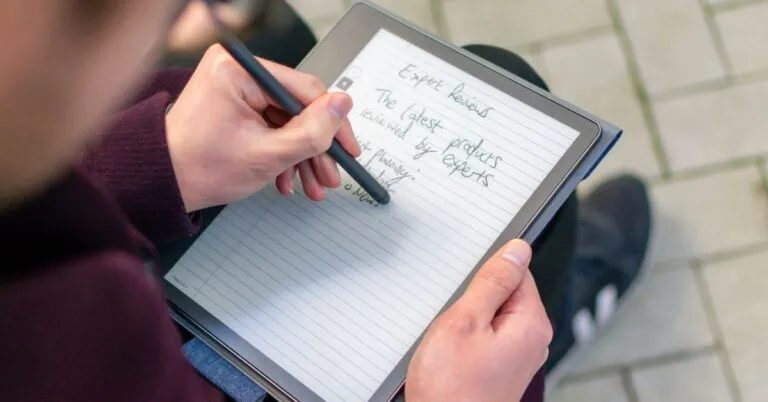 Expert Reviews
The latest products
reviewed by experts
planning: